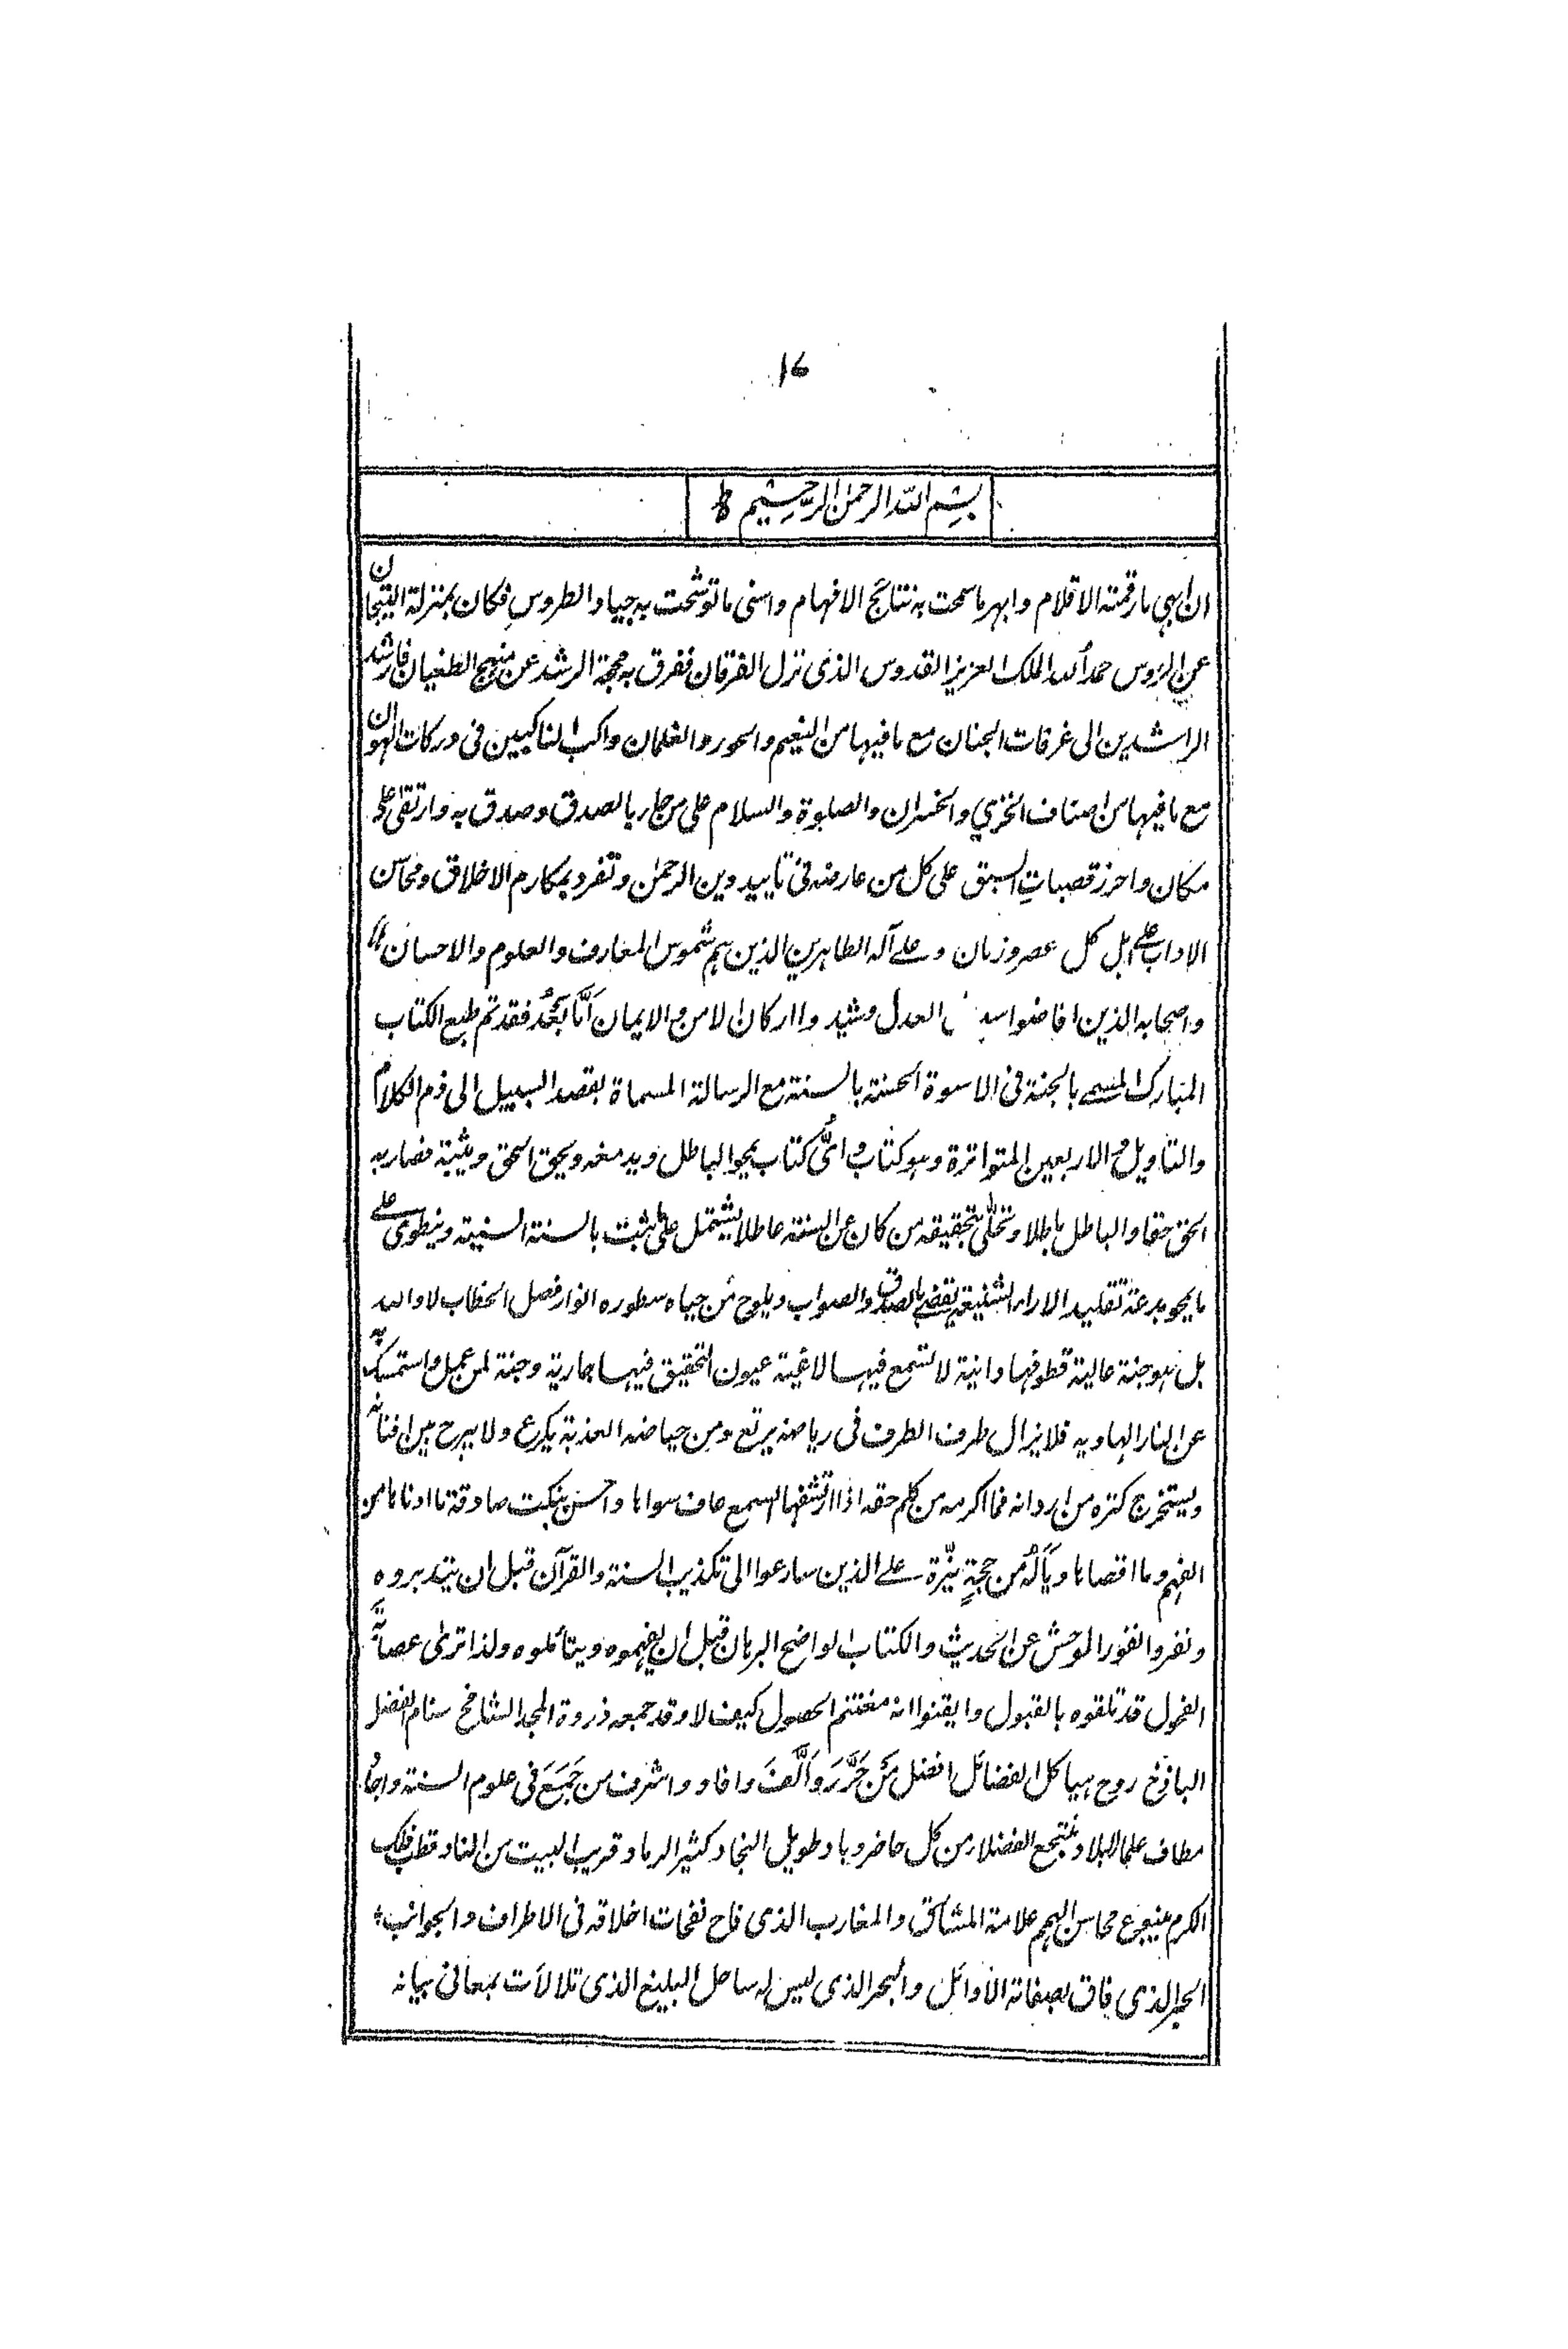 ١٤
بسم الله الرحمن الرحيم ط
ان ابهى ما رقمته الاقلام وابهر ما سمحت به نتائج الافهام واسنى ما توشحت به جياد الطروس فكان بمنزلة التيجان
عن الرؤس حمد الله الملك العزيز القدوس الذى نزل الفرقان ففرق به محجة الرشد عن منهج الطغيان فارشد
الراشدين الى غرفات الجنان مع ما فيها من النعيم والحور والغلمان واكب الناكبين فى دركات الهوان
مع ما فيها من اصناف الخزي والخسران والصلوة والسلام على من جاء بالصدق وصدق به وارتقى اعلى
مكان واحرز قصبات السبق على كل من عارضه فى تاييد دين الرحمن وتفرد بمكارم الاخلاق ومحاسن
الاداب على اهل كل عصر وزمان وعلى آله الطاهرين الذين هم شموس المعارف والعلوم والاحسان
واصحابه الذين افاضوا العدل وشيدوا اركان الامن والايمان اما بعد فقد تم طبع الكتاب
المبارك المسمى بالجنة فى الاسوة الحسنة بالسنة مع الرسالة المسماة بقصد السبيل الى ذم الكلام
والتاويل والاربعين المتواترة وهو كتاب واى كتاب يمحو الباطل ويدمغه ويحق الحق ويثبته فصار به
الحق حقا والباطل باطلا وتحلى بتحقيقه من كان عن السنة عاطلا يشتمل على ما ثبت بالسنة السنية وينطوى على
ما يمحو بدعة تقليد الاراء الشنيعة يقضى بالصدق والصواب ويلوح من جباه سطوره انوار فصل الخطاب لا والله
بل هو جنة عالية قطوفها دانية لا تسمع فيها لاغية عيون التحقيق فيها جارية وجنة لمن عمل واستمسك به
عن النار الهاوية فلا يزال طرف الطرف فى رياضه يرتع ومن حياضه العذبة يكرع ولا يبرح بين افنانه
ويستخرج كنزه من اردانه فما اكرمه من كلم حقه اذا ارتشفها السمع عاف سواها واحسن بنكت صادقة ما ادناها من
الفهم وما اقصاها وياله من حجة نيرة على الذين سارعوا الى تكذيب السنة والقرآن قبل ان يتدبروه
ونفروا نفور الوحش عن الحديث والكتاب الواضح البرهان قبل ان يفهموه ويتأملوه ولذا ترى عصابة
الفحول قد تلقوه بالقبول وايقنوا انه مغتنم الحصول كيف لا وقد جمعه ذروة المجد الشامخ سنام الفضل
الباذخ روح هياكل الفضائل افضل من حرر والف وافاد واشرف من جمع فى علوم السنة واجاد
مطاف علماء البلاد منتجع الفضلاء من كل حاضر وباد طويل النجاد كثير الرماد قريب البيت من الناد قطب فلك
الكرم ينبوع محاسن الهمم علامة المشارق والمغارب الذى فاح نفحات اخلاقه فى الاطراف والجوانب
الحبر الذى فاق بصفاته الأوائل والبحر الذى ليس له ساحل البليغ الذى تلالأت بمعانى بيانه